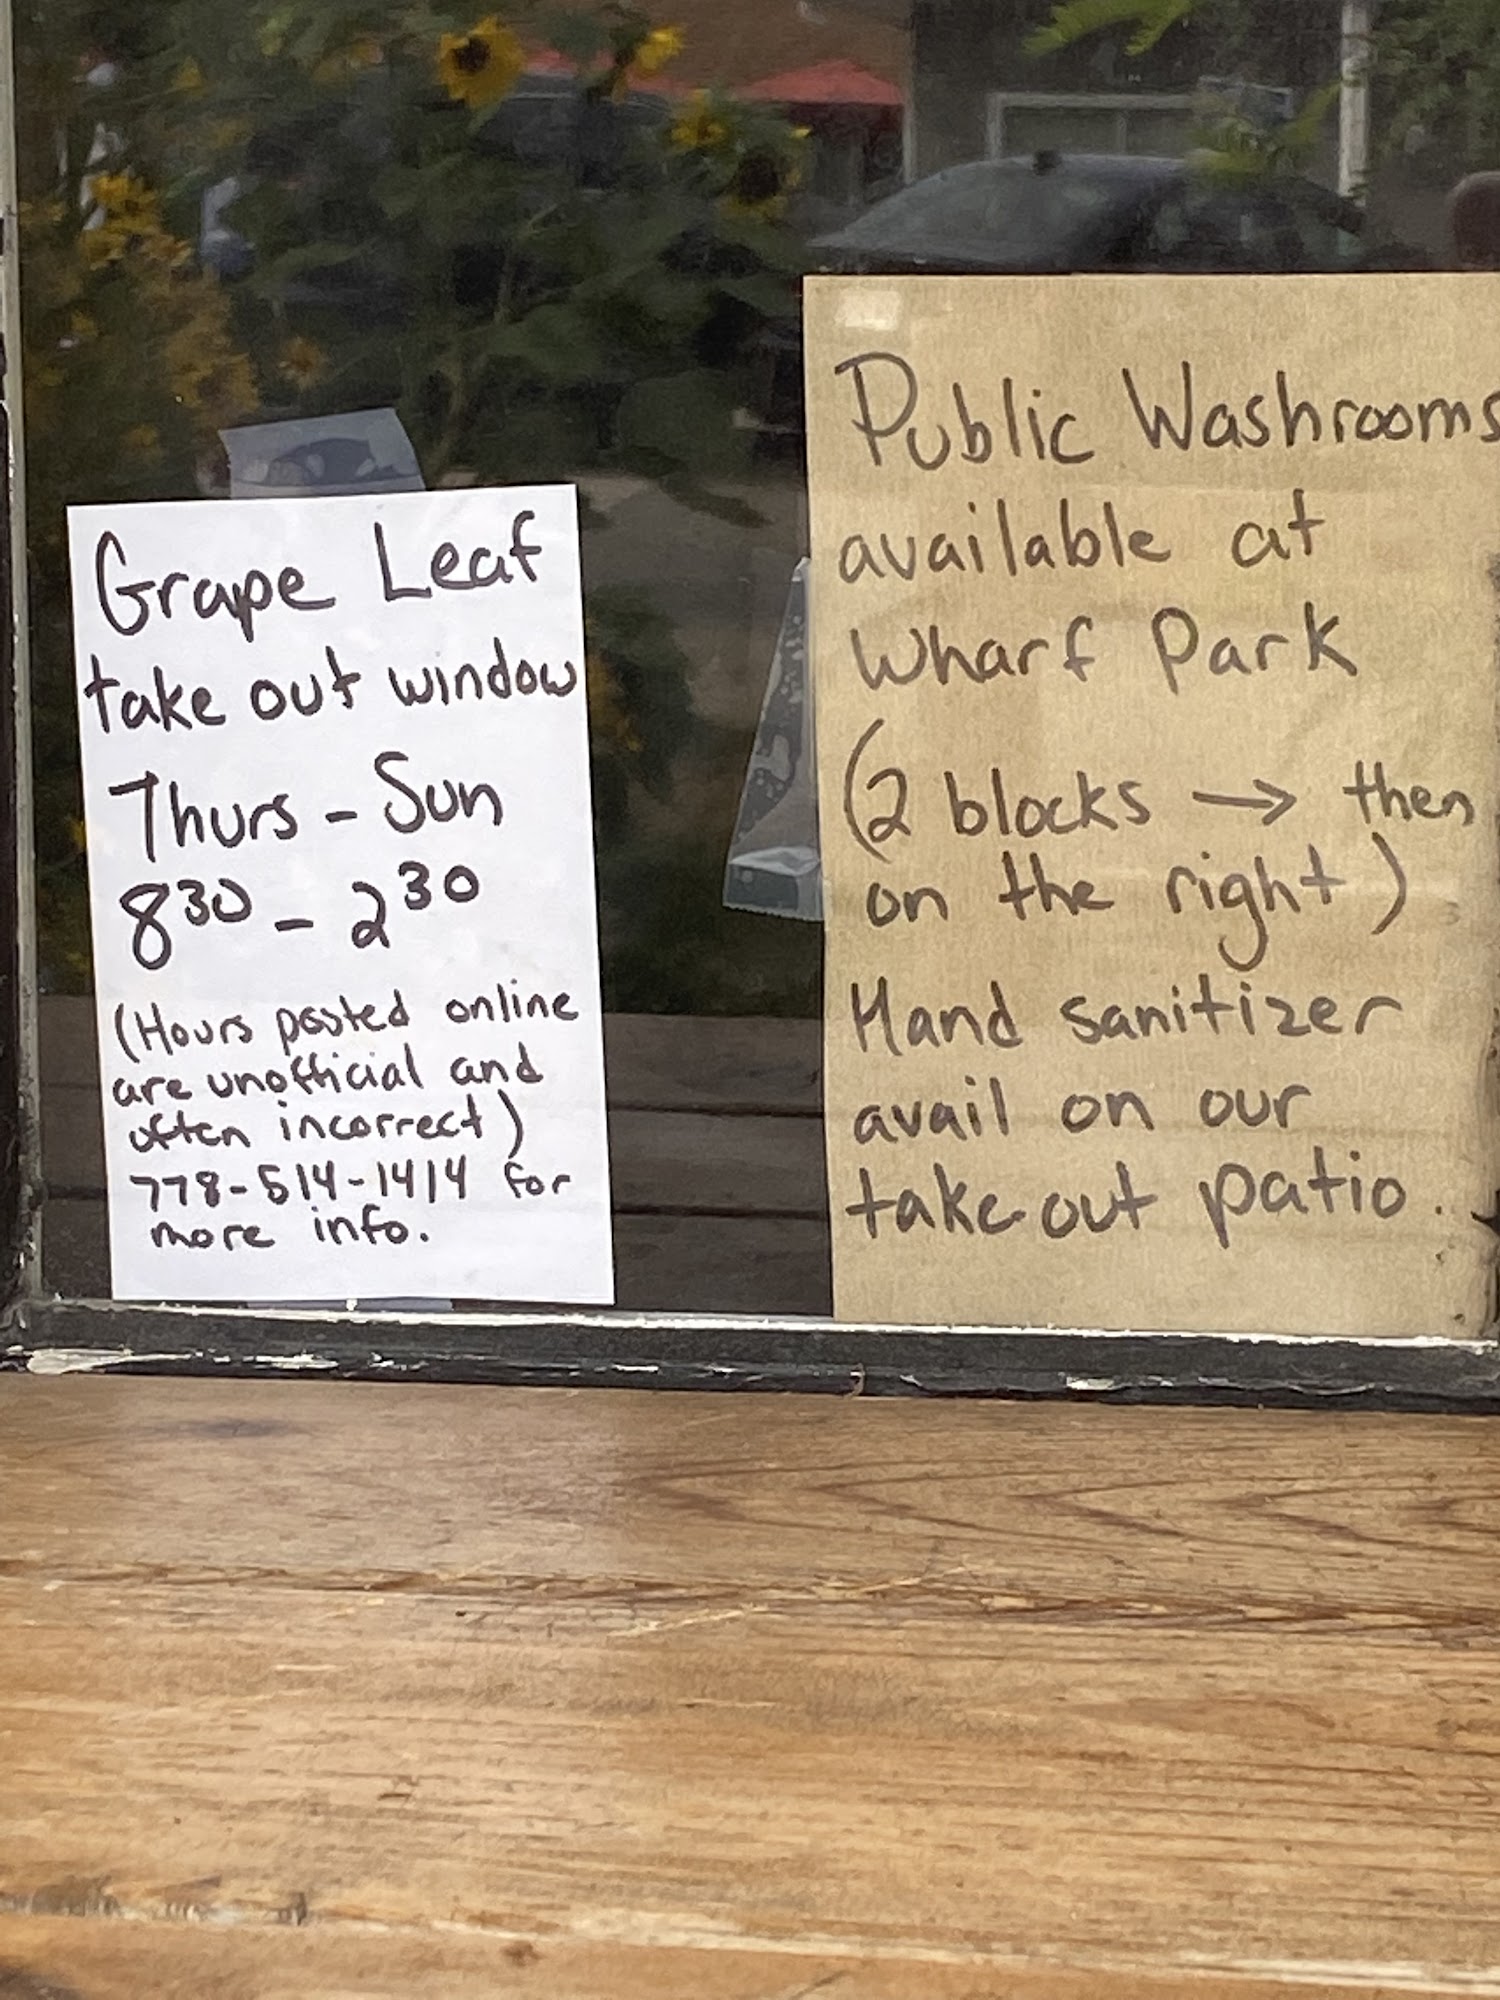 Grape Leaf
take out window
Thurs - Sun
8³⁰ - 2³⁰
(Hours posted online
are unofficial and
often incorrect)
778-514-1414 for
more info.
Public Washrooms
available at
Wharf Park
(2 blocks → then
on the right)
Hand sanitizer
avail on our
take out patio.